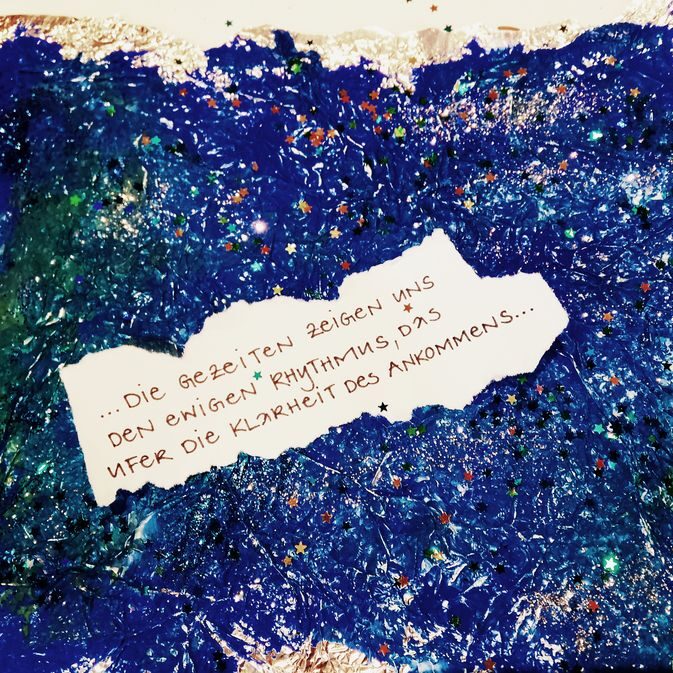 ...DIE GEZEITEN ZEIGEN UNS
DEN EWIGEN RHYTHMUS, DAS
UFER DIE KLARHEIT DES ANKOMMENS...